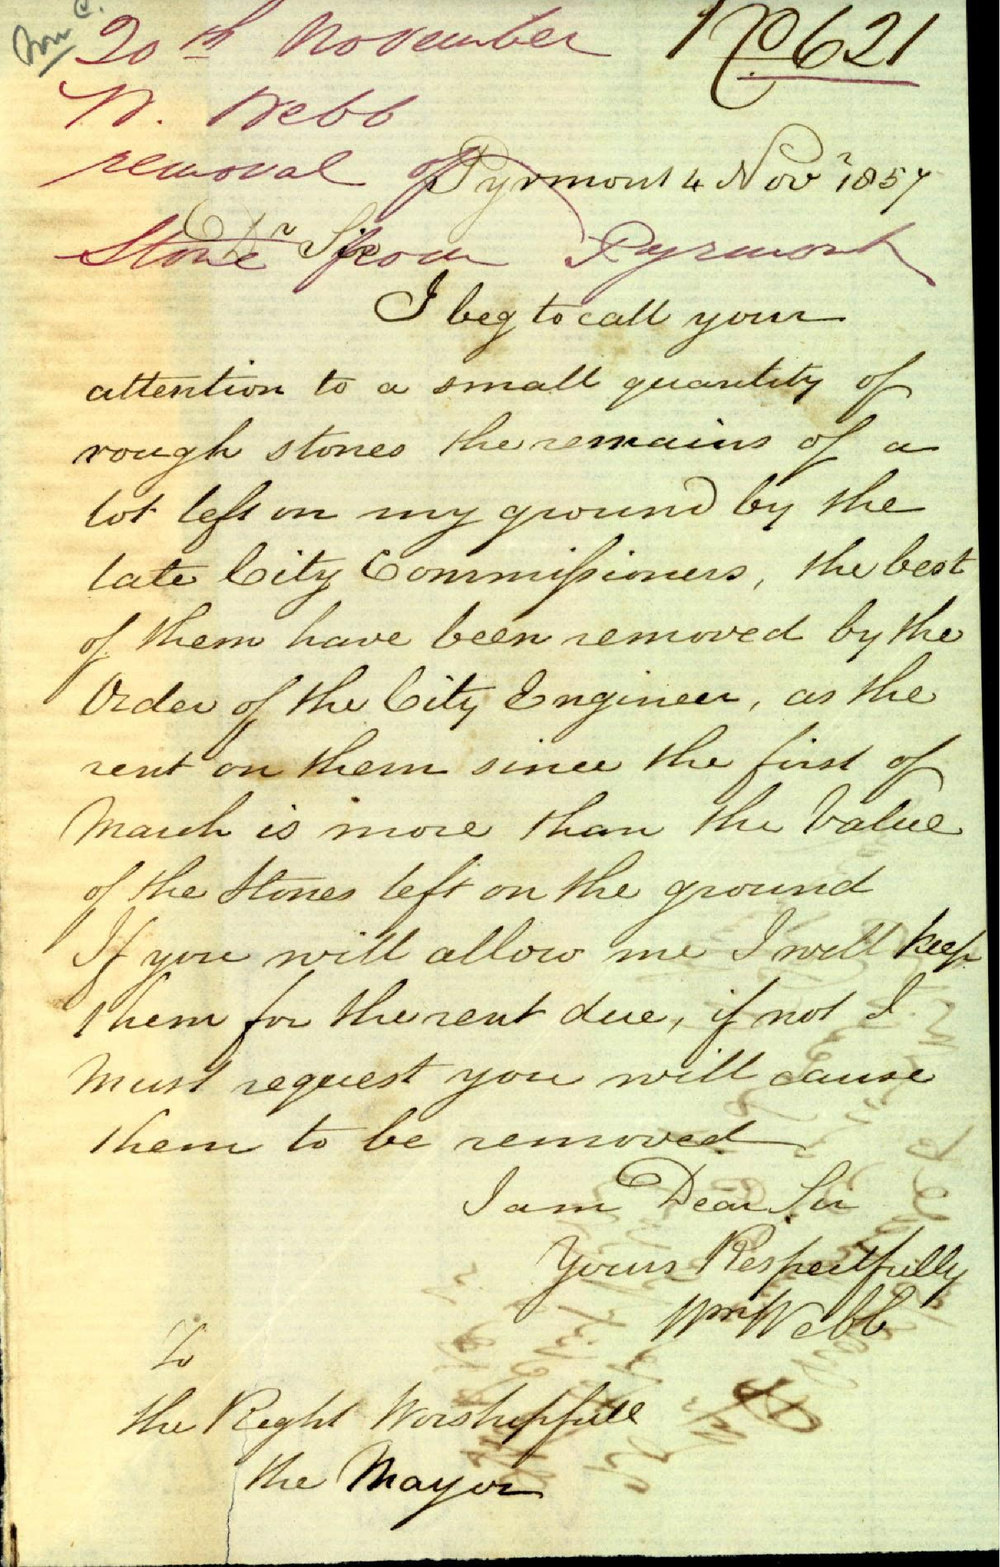 20th November
No 621
W. Webb
removal of
Stone from Pyrmont
Pyrmont 4 Novr 1857
Dr Sir
I beg to call your
attention to a small quantity of
rough stones the remains of a
lot left on my ground by the
late City Commissioners, the best
of them have been removed by the
Order of the City Engineer, as the
rent on them since the first of
March is more than the Value
of the Stones left on the ground
If you will allow me I will keep
them for the rent due, if not I
Must request you will cause
them to be removed
I am Dear Sir
Yours Respectfully
Wm Webb
To
the Right Worshipfull
the Mayor